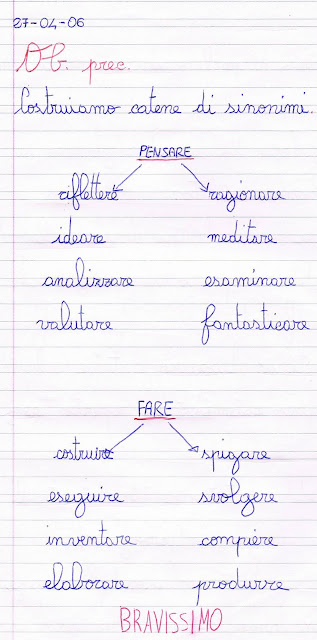 27-04-06
Ob. prec.
Costruiamo catene di sinonimi.
PENSARE
riflettere ragionare
ideare meditare
analizzare esaminare
valutare fantasticare
FARE
costruire spigare
eseguire svolgere
inventare compiere
elaborare produrre
BRAVISSIMO